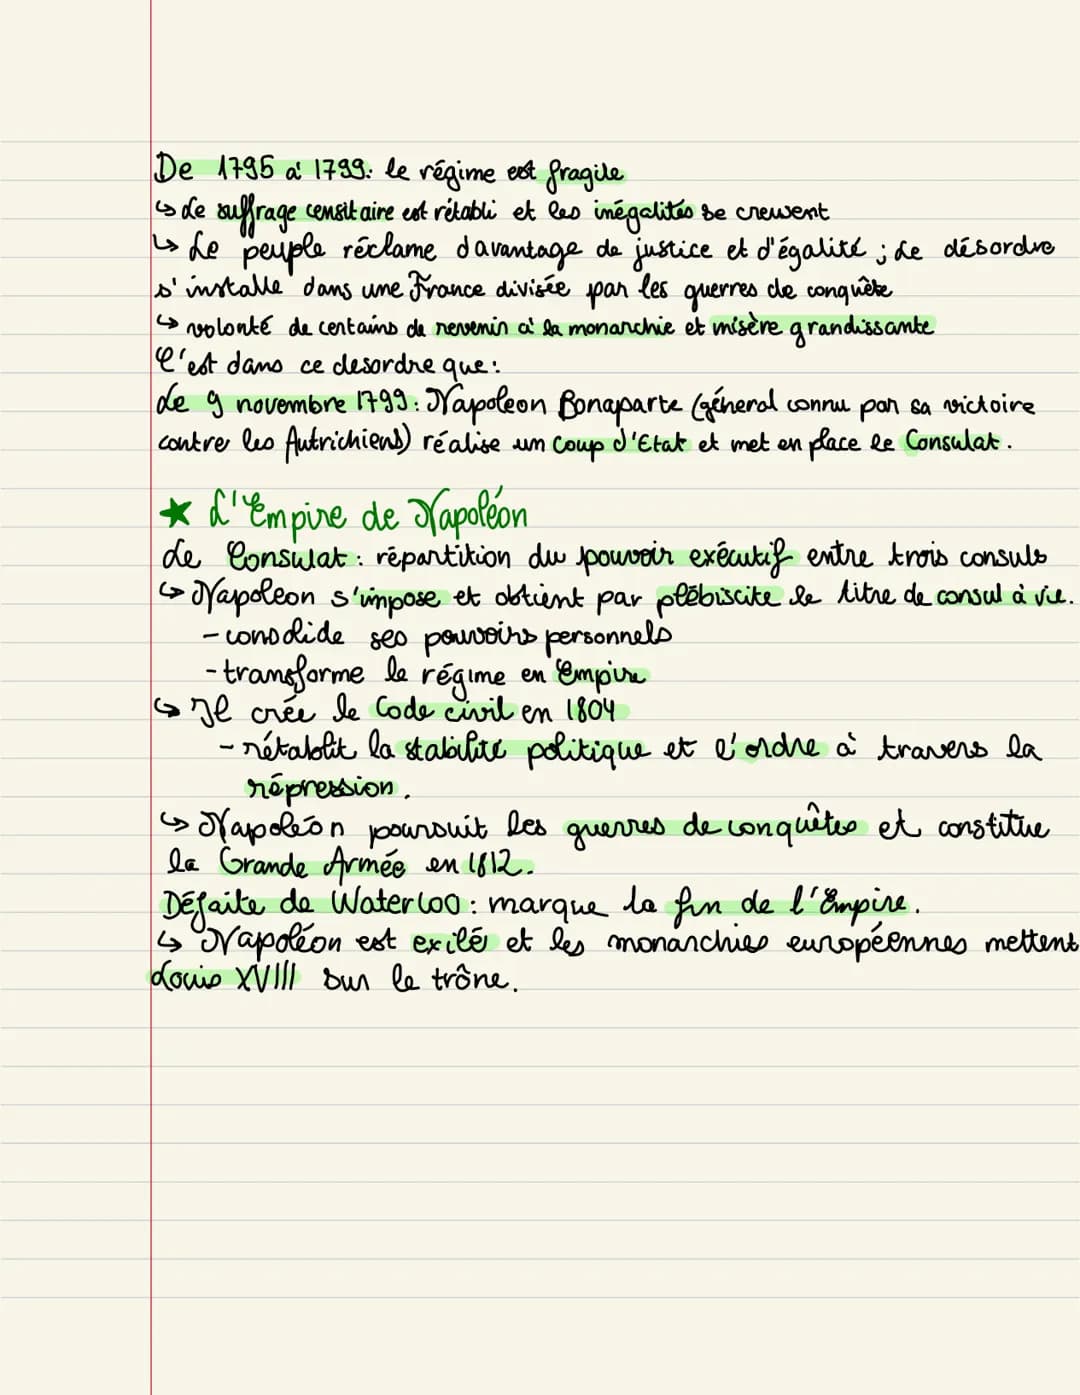 De 1795 à 1799: le régime est fragile
↳ Le suffrage censitaire est rétabli et les inégalités se creusent
↳ Le peuple réclame davantage de justice et d'égalité ; Le désordre
s'installe dans une France divisée par les guerres de conquête
↳ volonté de certains de revenir à la monarchie et misère grandissante
C'est dans ce desordre que :
Le 9 novembre 1799 : Napoleon Bonaparte (géneral connu par sa victoire
contre les Autrichiens) réalise un Coup d'Etat et met en place le Consulat.
★ L'Empire de Napoléon
Le Consulat : répartition du pouvoir exécutif entre trois consuls
↳ Napoleon s'impose et obtient par plébiscite le titre de consul à vie.
- consolide ses pouvoirs personnels
- transforme le régime en Empire
↳ Il crée le Code civil en 1804
- rétablit la stabilité politique et l'ordre à travers la
répression.
↳ Napoléon poursuit les guerres de conquêtes et constitue
la Grande Armée en 1812.
Défaite de Waterloo : marque la fin de l'Empire.
↳ Napoléon est exilés et les monarchies européennes mettent
Louis XVIII sur le trône.